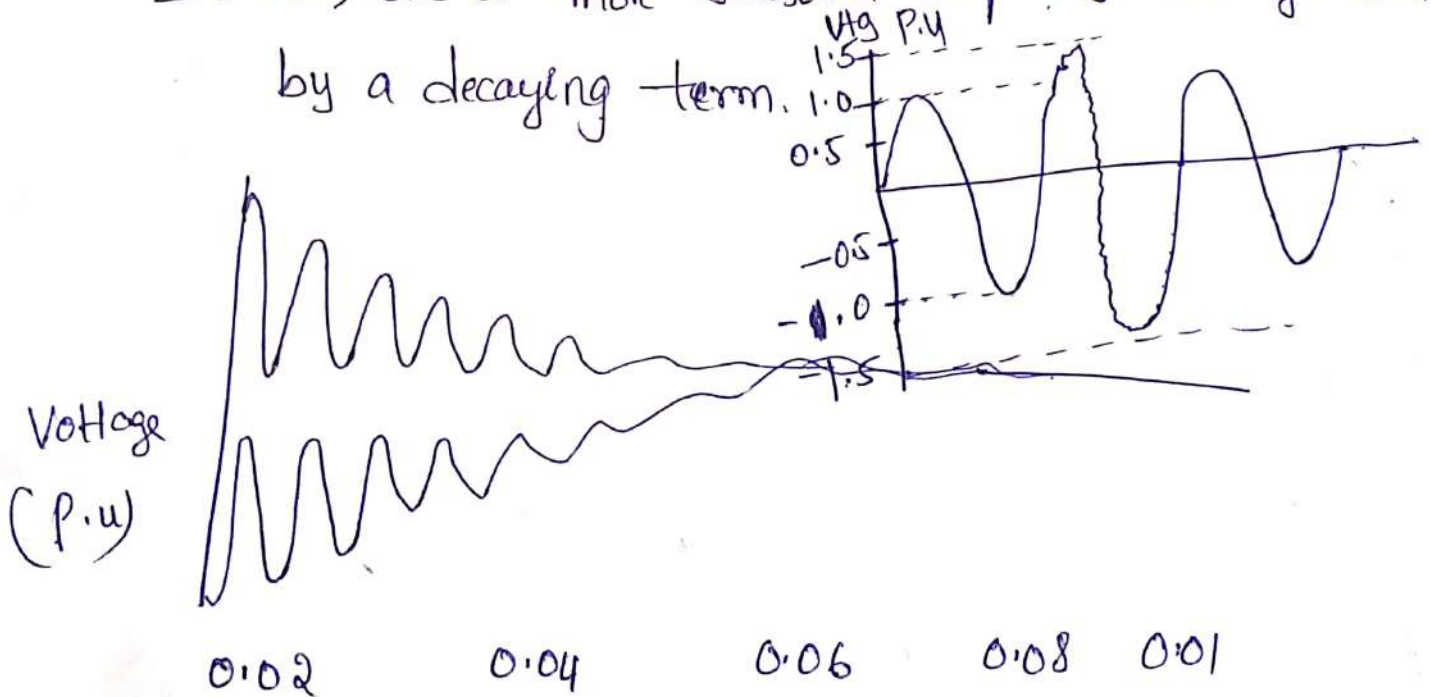 by a decaying term.
Vtg P.u
1.5
1.0
0.5
-0.5
-1.0
-1.5
Voltage
(P.u)
0.02 0.04 0.06 0.08 0.01